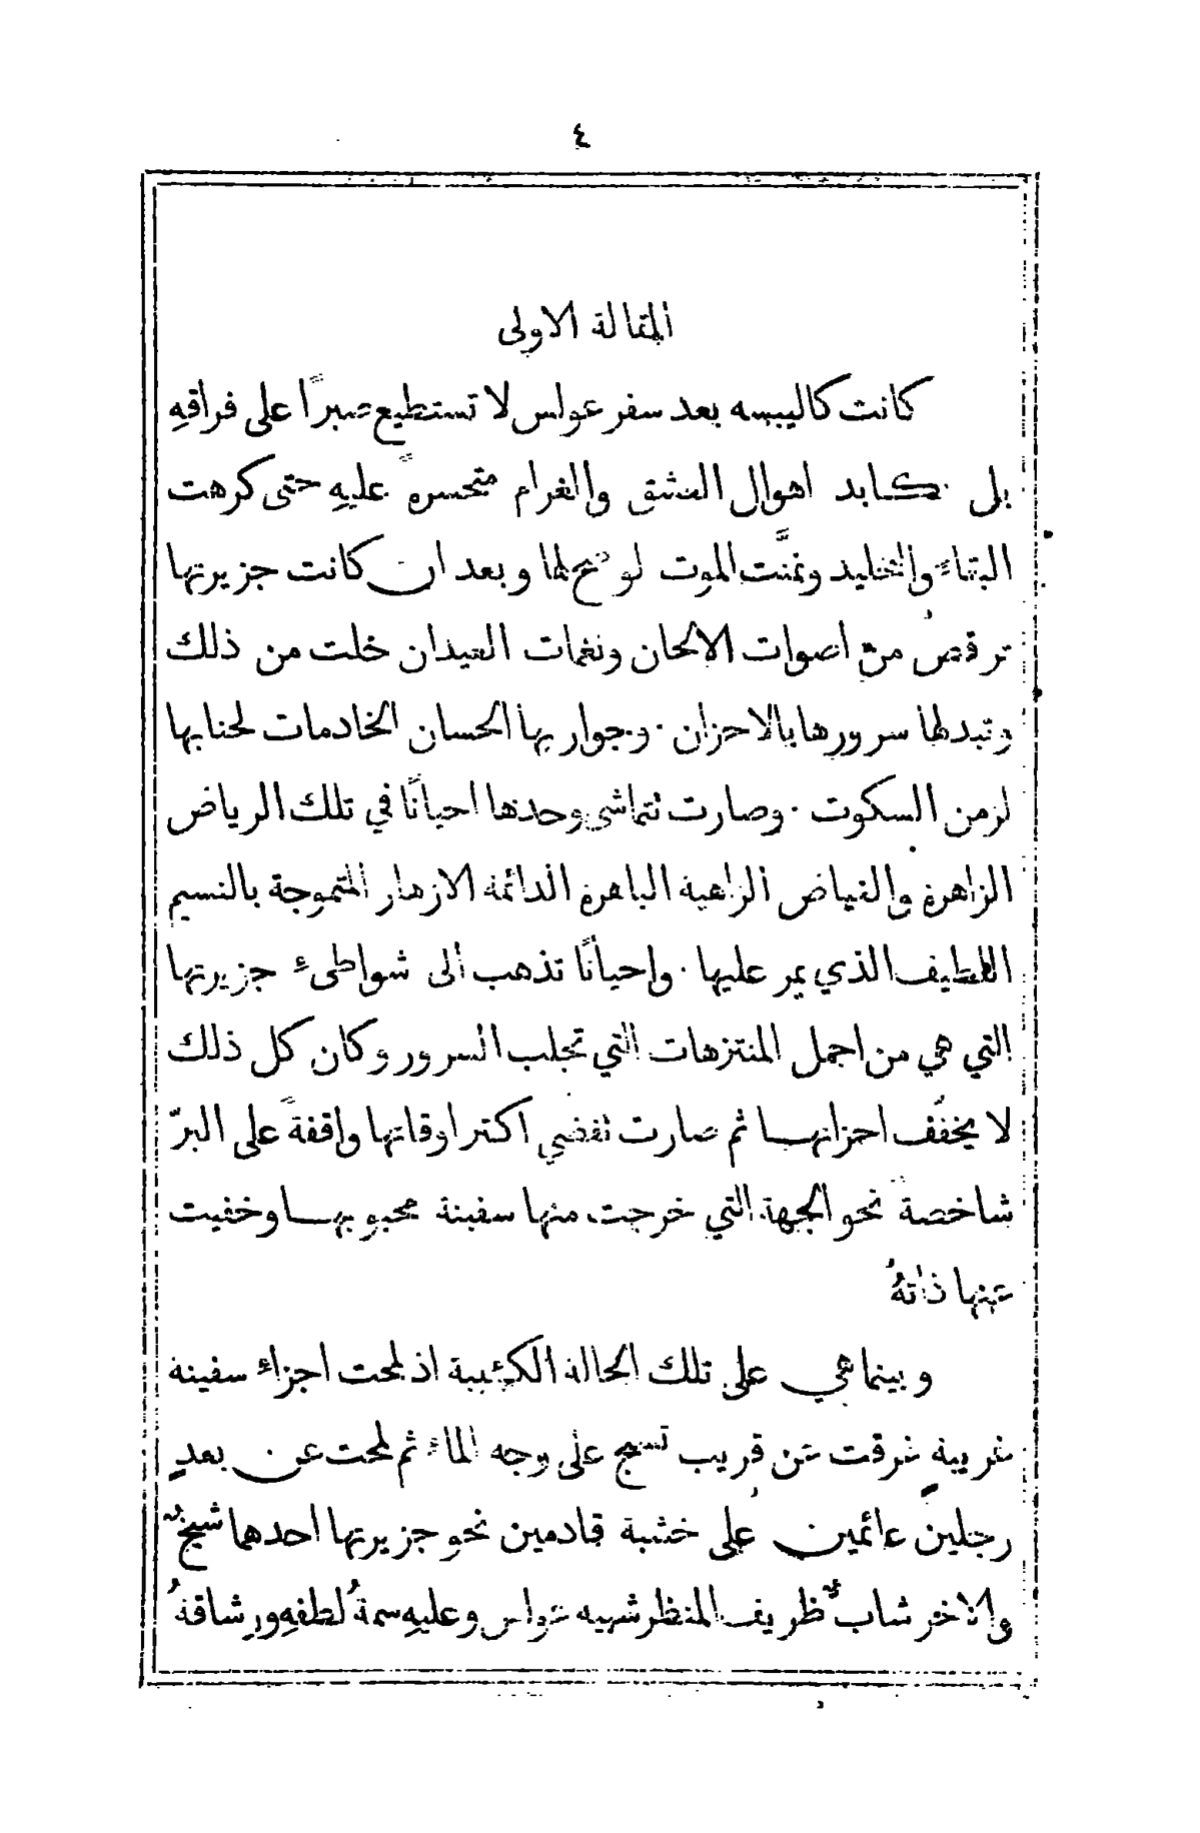 ٤
المقالة الاولى
كانت كاليبسه بعد سفر عولس لا تستطيع صبراً على فراقهِ
بل تكابد اهوال العشق والغرام متحسرةً عليهِ حتى كرهت
البقاءَ والتخليد وتمنَّت الموت لو صح لها وبعد ان كانت جزيرتها
ترقصُ من اصوات الالحان ونغمات العيدان خلت من ذلك
وتبدلها سرورها بالاحزان · وجواريها الحسان الخادمات لجنابها
لزمن السكوت · وصارت تتماشى وحدها احيانًا في تلك الرياض
الزاهرة والغياض الزاهية الباهرة الدائمة الازهار المتموجة بالنسيم
اللطيف الذي يمر عليها · واحيانًا تذهب الى شواطىء جزيرتها
التي هي من اجمل المنتزهات التي تجلب السرور وكان كل ذلك
لا يخفّف احزانها ثم صارت تقضي اكثر اوقاتها واقفةً على البرّ
شاخصةً نحو الجهة التي خرجت منها سفينة محبوبها وخفيت
عنها ذاتهُ
وبينما هي على تلك الحالة الكئيبة اذ لمحت اجزاءَ سفينة
غريبةٍ غرقت عن قريب تسبح على وجه الماءِ ثم لمحت عن بعدٍ
رجلين عائمين على خشبة قادمين نحو جزيرتها احدهما شيخٌ
والاخر شابٌ ظريف المنظر شبيه عولس وعليهِ سمةُ لطفهِ ورشاقةُ